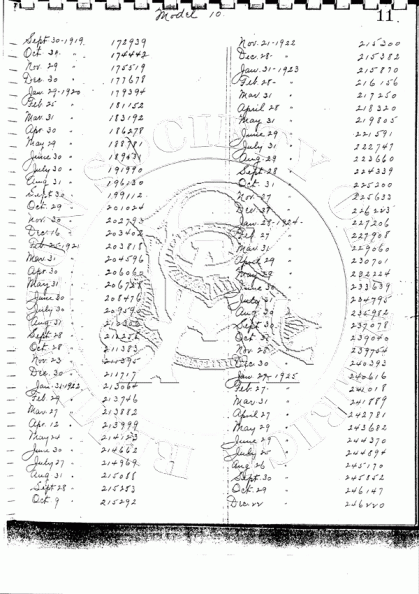 Model 10.
11
Sept. 30-1919. 172939
Oct 30. " 174442
Nov 29 " 175519
Dec 30 " 177678
Jan 29-1920 179394
Feb 25 " 181152
Mar 31 " 183192
Apr. 30 " 186278
May 29 " 188781
June 30 " 189431
July 30 " 191990
Aug 31 " 196130
Sept 30 " 199112
Oct 29 " 201024
Nov. 30 " 202793
Dec. 16 " 203402
Feb 25-1921 203818
Mar 31 " 204596
Apr 30 " 206060
May 31 " 206728
June 30 " 208476
July 30 "
Aug. 31 "
Sept 28 "
Oct. 28 " 211383
Nov. 23 " 211595
Dec. 30 " 211717
Jan-31-1922 213064
Feb. 29 " 213746
Mar 27 " 213882
Apr. 12 " 213999
May 24 " 214123
June 30 " 214662
July 27 " 214969
Aug 31 " 215088
Sept 28 " 215283
Oct 9 " 215292
Nov. 21-1922 215300
Dec. 28- " 215382
Jan. 31-1923 215870
Feb 28- " 216156
Mar 31 " 217250
April 28 " 218320
May 31 " 219805
June 29 " 221591
July 31 " 222747
Aug. 29 " 223660
Sept 28 " 224339
Oct. 31 " 225200
Nov. 27 " 225633
Dec 28 " 226223
Jan 28-1924- 227206
Feb 27 " 227908
Mar 31 " 229060
April 29 " 230701
May 29 " 232224
June 30 " 233639
July 31 " 234795
Aug 30 " 235982
Sept 30 " 237078
Oct 31 " 239040
Nov 28 " 239754
Dec 30 " 240393
Jan 29-1925 240616
Feb 27 " 241018
Mar 31 " 241889
April 27 " 242781
May 29 " 243682
June 29 " 244370
July 25 " 244894
Aug 26 " 245170
Sept 30 " 245852
Oct. 29 " 246147
Dec 22 "